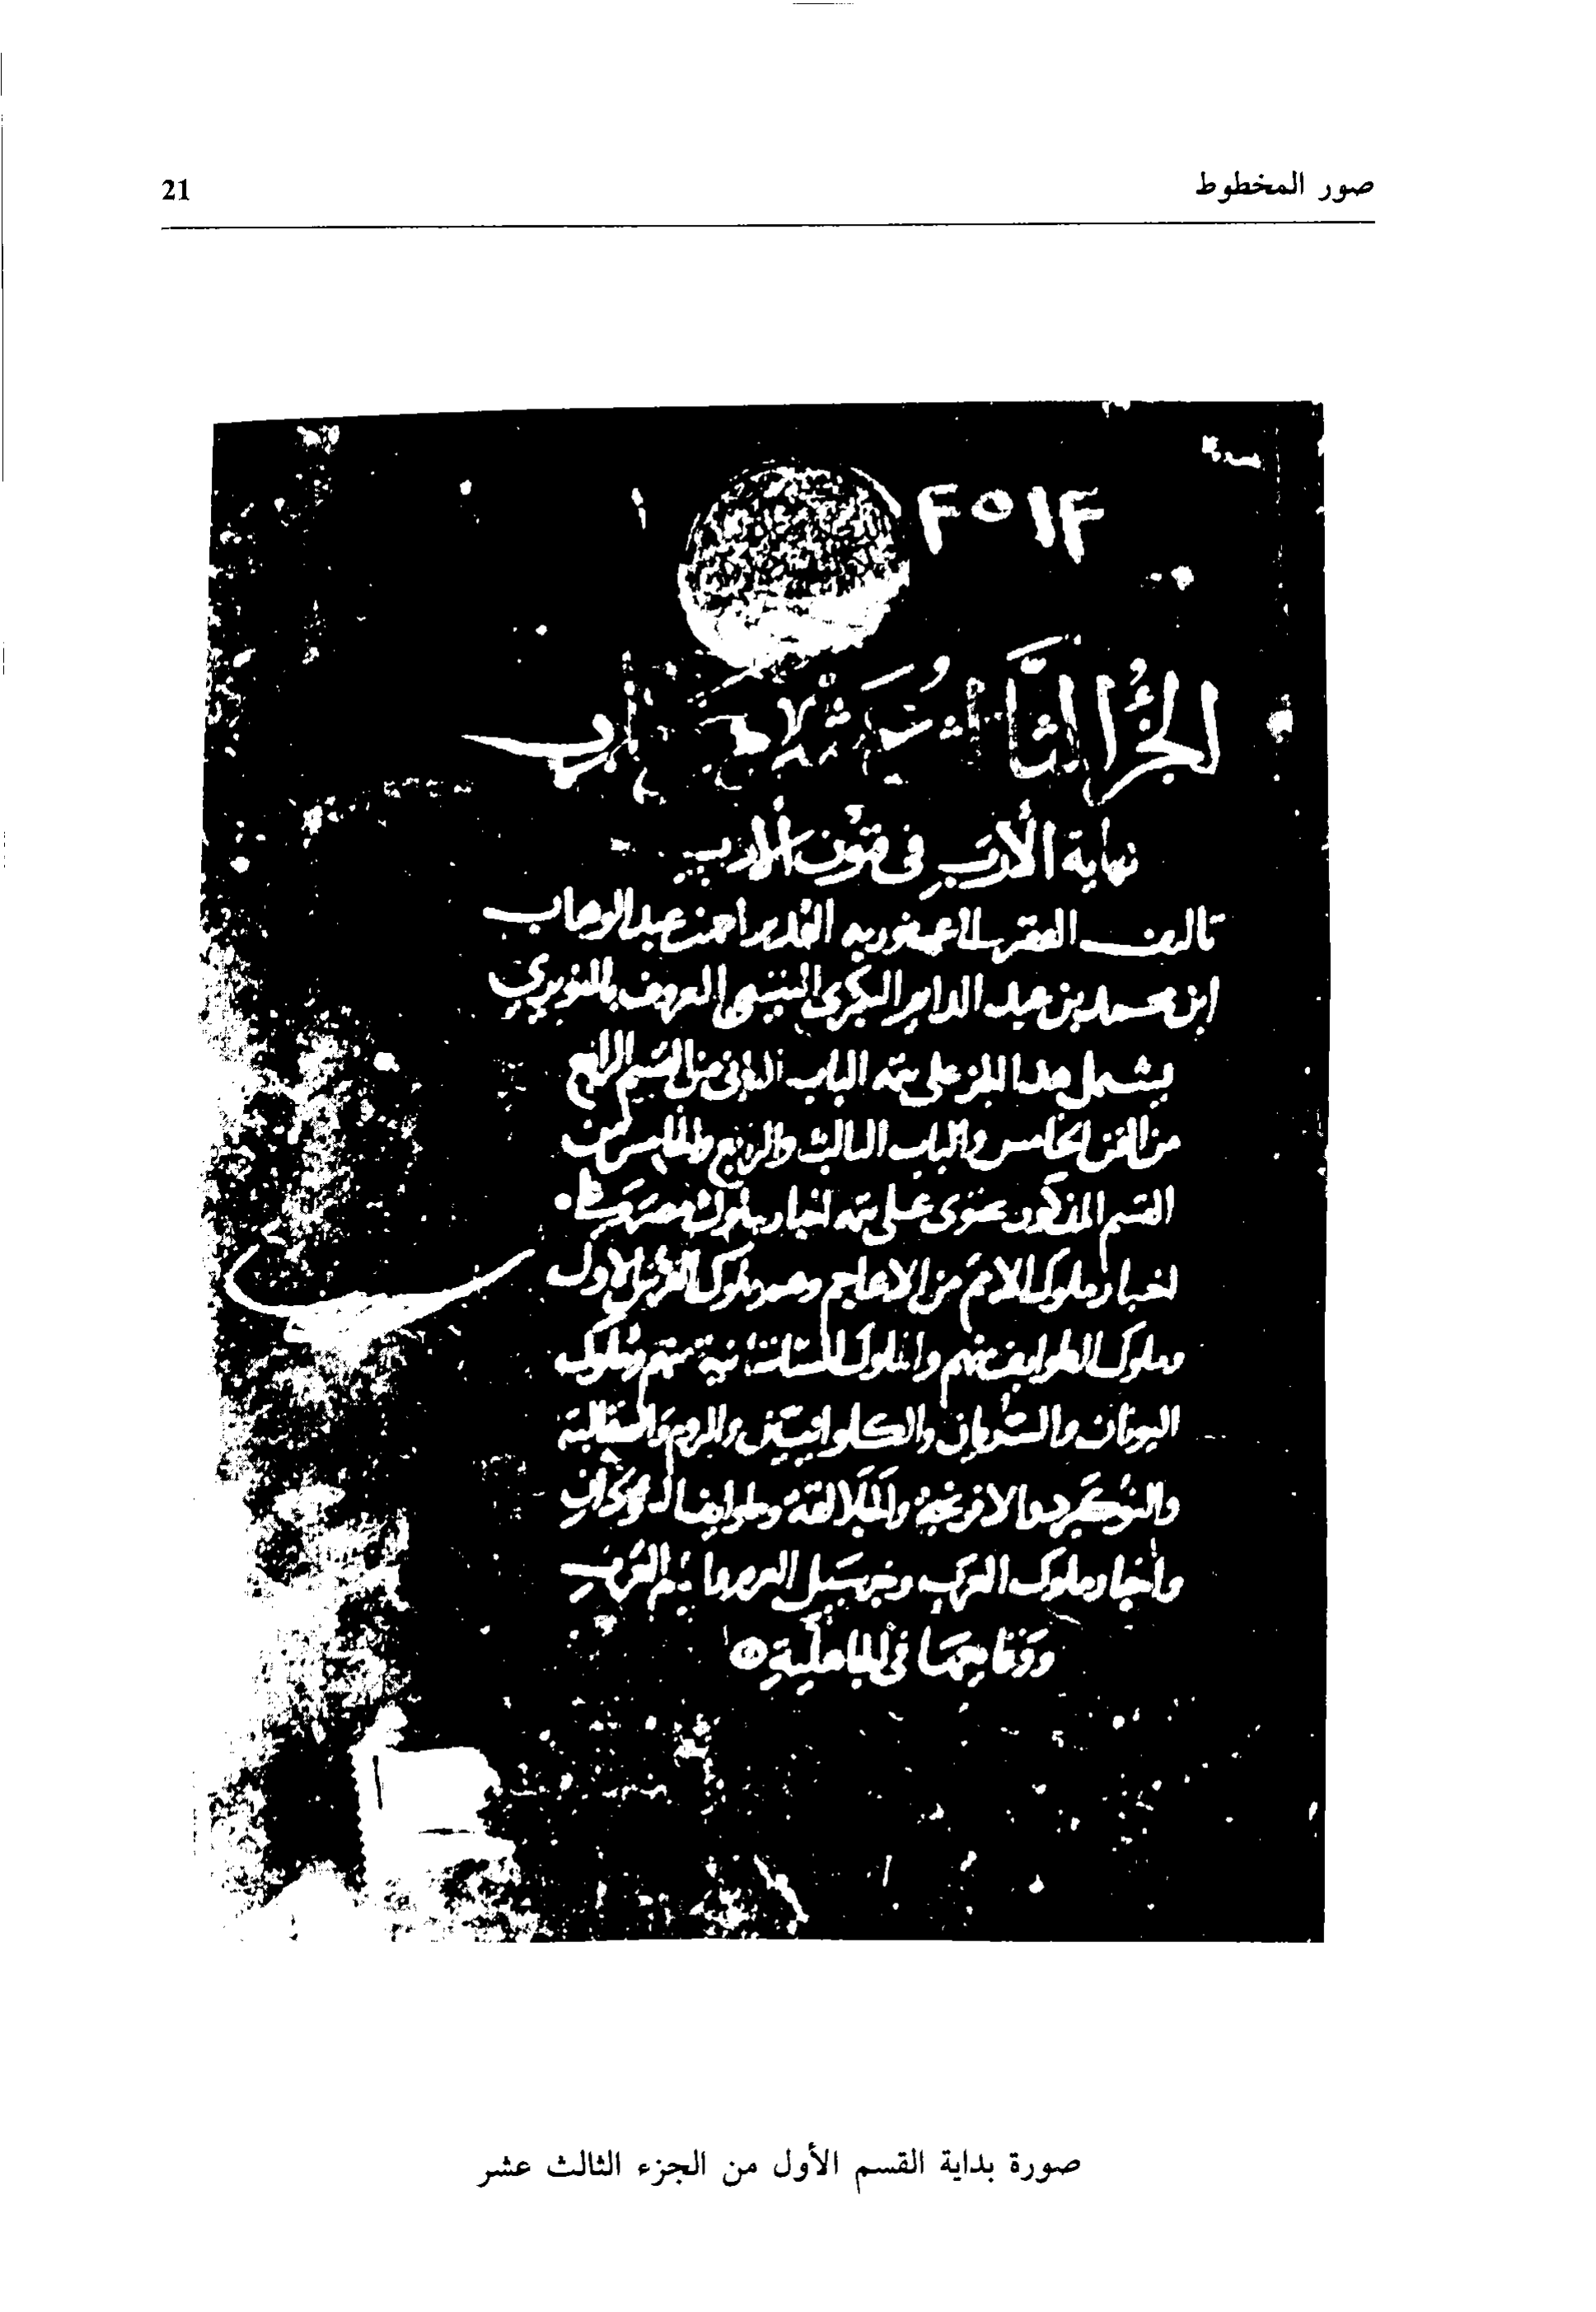 صور المخطوط
21
٢٥١٢
الجزُ الثَّالث عشر من كتاب
نهاية الأرب في فنون الأدب
تاليف الفقير الى عفو ربه القدير احمد بن عبد الوهاب
ابن محمد بن عبد الدايم البكرى التيمى المعروف بالنويري
يشتمل هذا الجز على تتمه الباب الثانى من القسم الرابع
من الفن الخامس والباب الثالث والرابع والخامس من
القسم المذكور يحتوى على تتمه اخبار ملوك مصر
اخبار ملوك الامم من الاعاجم وهم ملوك الفرس الاول
وملوك الطوايف منهم والملوك الساسانية منهم وملوك
اليونان والسريان والكلوانيين والروم والصقالبة
والنوكبرد والافرنجة والجلالقة وطوايف السودان
وأخبار ملوك العرب وخبر سيل العرم وايام العرب
ووقايعها في الجاهلية
صورة بداية القسم الأول من الجزء الثالث عشر